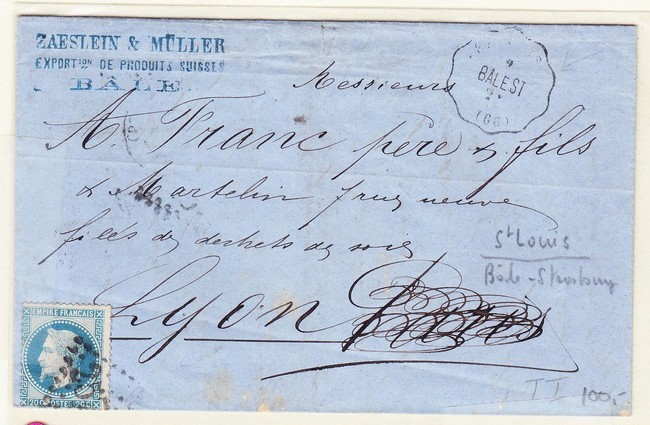 ZAESLEIN & MÜLLER
EXPORTION DE PRODUITS SUISSES
BÂLE
BALEST
(66)
Messieurs
A. Franc père & fils
& Martelin 7 rue neuve
filés de dechets de soie
Lyon Paris
St Louis
Bâle-Strasbourg
EMPIRE FRANCAIS
20c POSTES 20c
TT 100,-